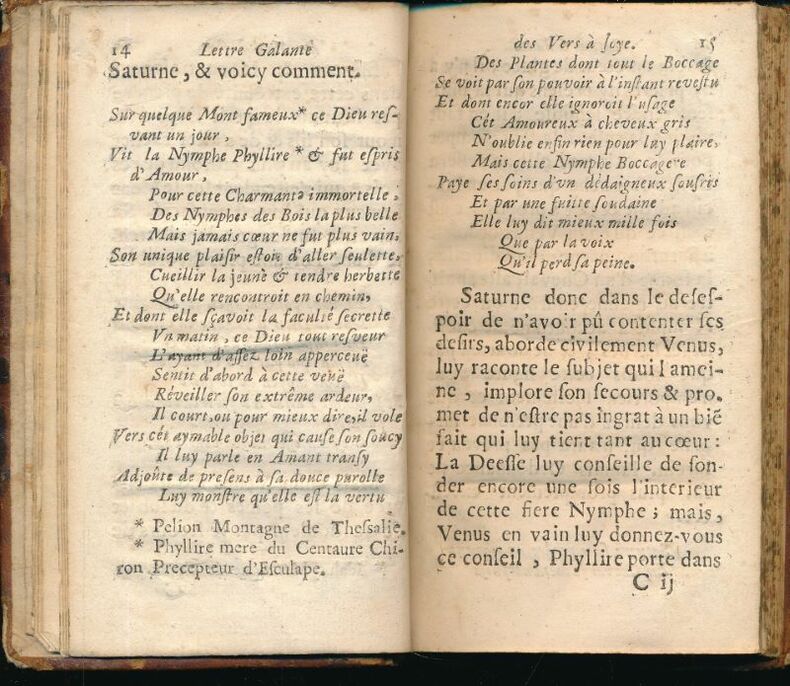 14 Lettre Galante
Saturne, & voicy comment.
Sur quelque Mont fameux* ce Dieu reſ-
vant un jour,
Vit la Nymphe Phyllire * & fut eſpris
d'Amour,
Pour cette Charmante immortelle,
Des Nymphes des Bois la plus belle
Mais jamais cœur ne fut plus vain,
Son unique plaiſir eſtoit d'aller ſeulette,
Cueillir la jeune & tendre herbette
Qu'elle rencontroit en chemin,
Et dont elle ſçavoit la faculté ſecrette
Vn matin, ce Dieu tout reſveur
L'ayant d'aſſez loin apperceuë
Sentit d'abord à cette veuë
Réveiller ſon extrême ardeur,
Il court, ou pour mieux dire, il vole
Vers cét aymable objet qui cauſe ſon ſoucy
Il luy parle en Amant tranſy
Adjoûte de preſens à ſa douce parolle
Luy monſtre qu'elle eſt la vertu
* Pelion Montagne de Theſſalie.
* Phyllire mere du Centaure Chi-
ron Precepteur d'Eſculape.
des Vers à Joye. 15
Des Plantes dont tout le Boccage
Se voit par ſon pouvoir à l'inſtant reveſtu
Et dont encor elle ignoroit l'uſage
Cét Amoureux à cheveux gris
N'oublie enfin rien pour luy plaire,
Mais cette Nymphe Boccagere
Paye ſes ſoins d'vn dédaigneux ſouſris
Et par une fuitte ſoudaine
Elle luy dit mieux mille fois
Que par la voix
Qu'il perd ſa peine.
Saturne donc dans le deſeſ-
poir de n'avoir pû contenter ſes
deſirs, aborde civilement Venus,
luy raconte le ſubjet qui l'amei-
ne, implore ſon ſecours & pro-
met de n'eſtre pas ingrat à un biẽ
fait qui luy tient tant au cœur:
La Deeſſe luy conſeille de ſon-
der encore une fois l'interieur
de cette fiere Nymphe; mais,
Venus en vain luy donnez-vous
ce conſeil, Phyllire porte dans
C ij